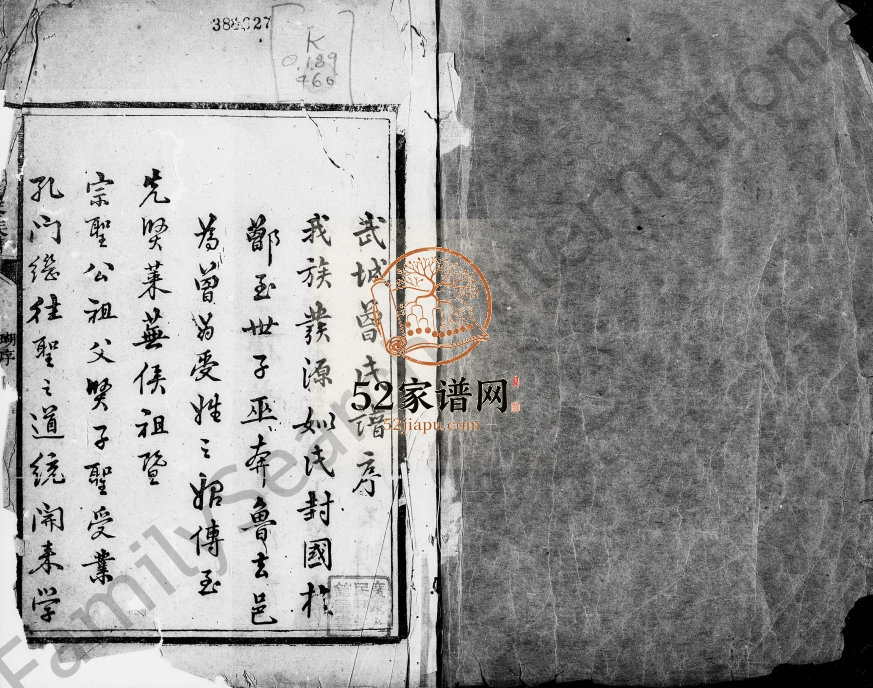 388627
K
0.189
466
武城曾氏譜序
我族發源姒氏封國於
鄫至世子巫奔魯去邑
為曾为受姓之始傳至
先賢萊蕪侯祖暨
宗聖公祖父賢子聖受業
孔门繼往聖之道統開来学
52家谱网
52jiapu.com
FamilySearch International